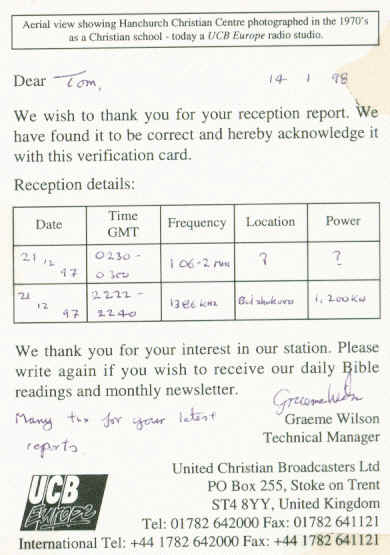 Aerial view showing Hanchurch Christian Centre photographed in the 1970's
as a Christian school - today a UCB Europe radio studio.
Dear Tom,
14 1 98
We wish to thank you for your reception report. We
have found it to be correct and hereby acknowledge it
with this verification card.
Reception details:
Date Time GMT Frequency Location Power
21 12 97 0230 - 0300 106-2 MHz ? ?
21 12 97 2222 - 2240 1386 kHz 1,200 kW
We thank you for your interest in our station. Please
write again if you wish to receive our daily Bible
readings and monthly newsletter.
Many tnx for your latest
reports.
Graeme Wilson
Technical Manager
UCB
Europe
United Christian Broadcasters Ltd
PO Box 255, Stoke on Trent
ST4 8YY, United Kingdom
Tel: 01782 642000 Fax: 01782 641121
International Tel: +44 1782 642000 Fax: +44 1782 641121